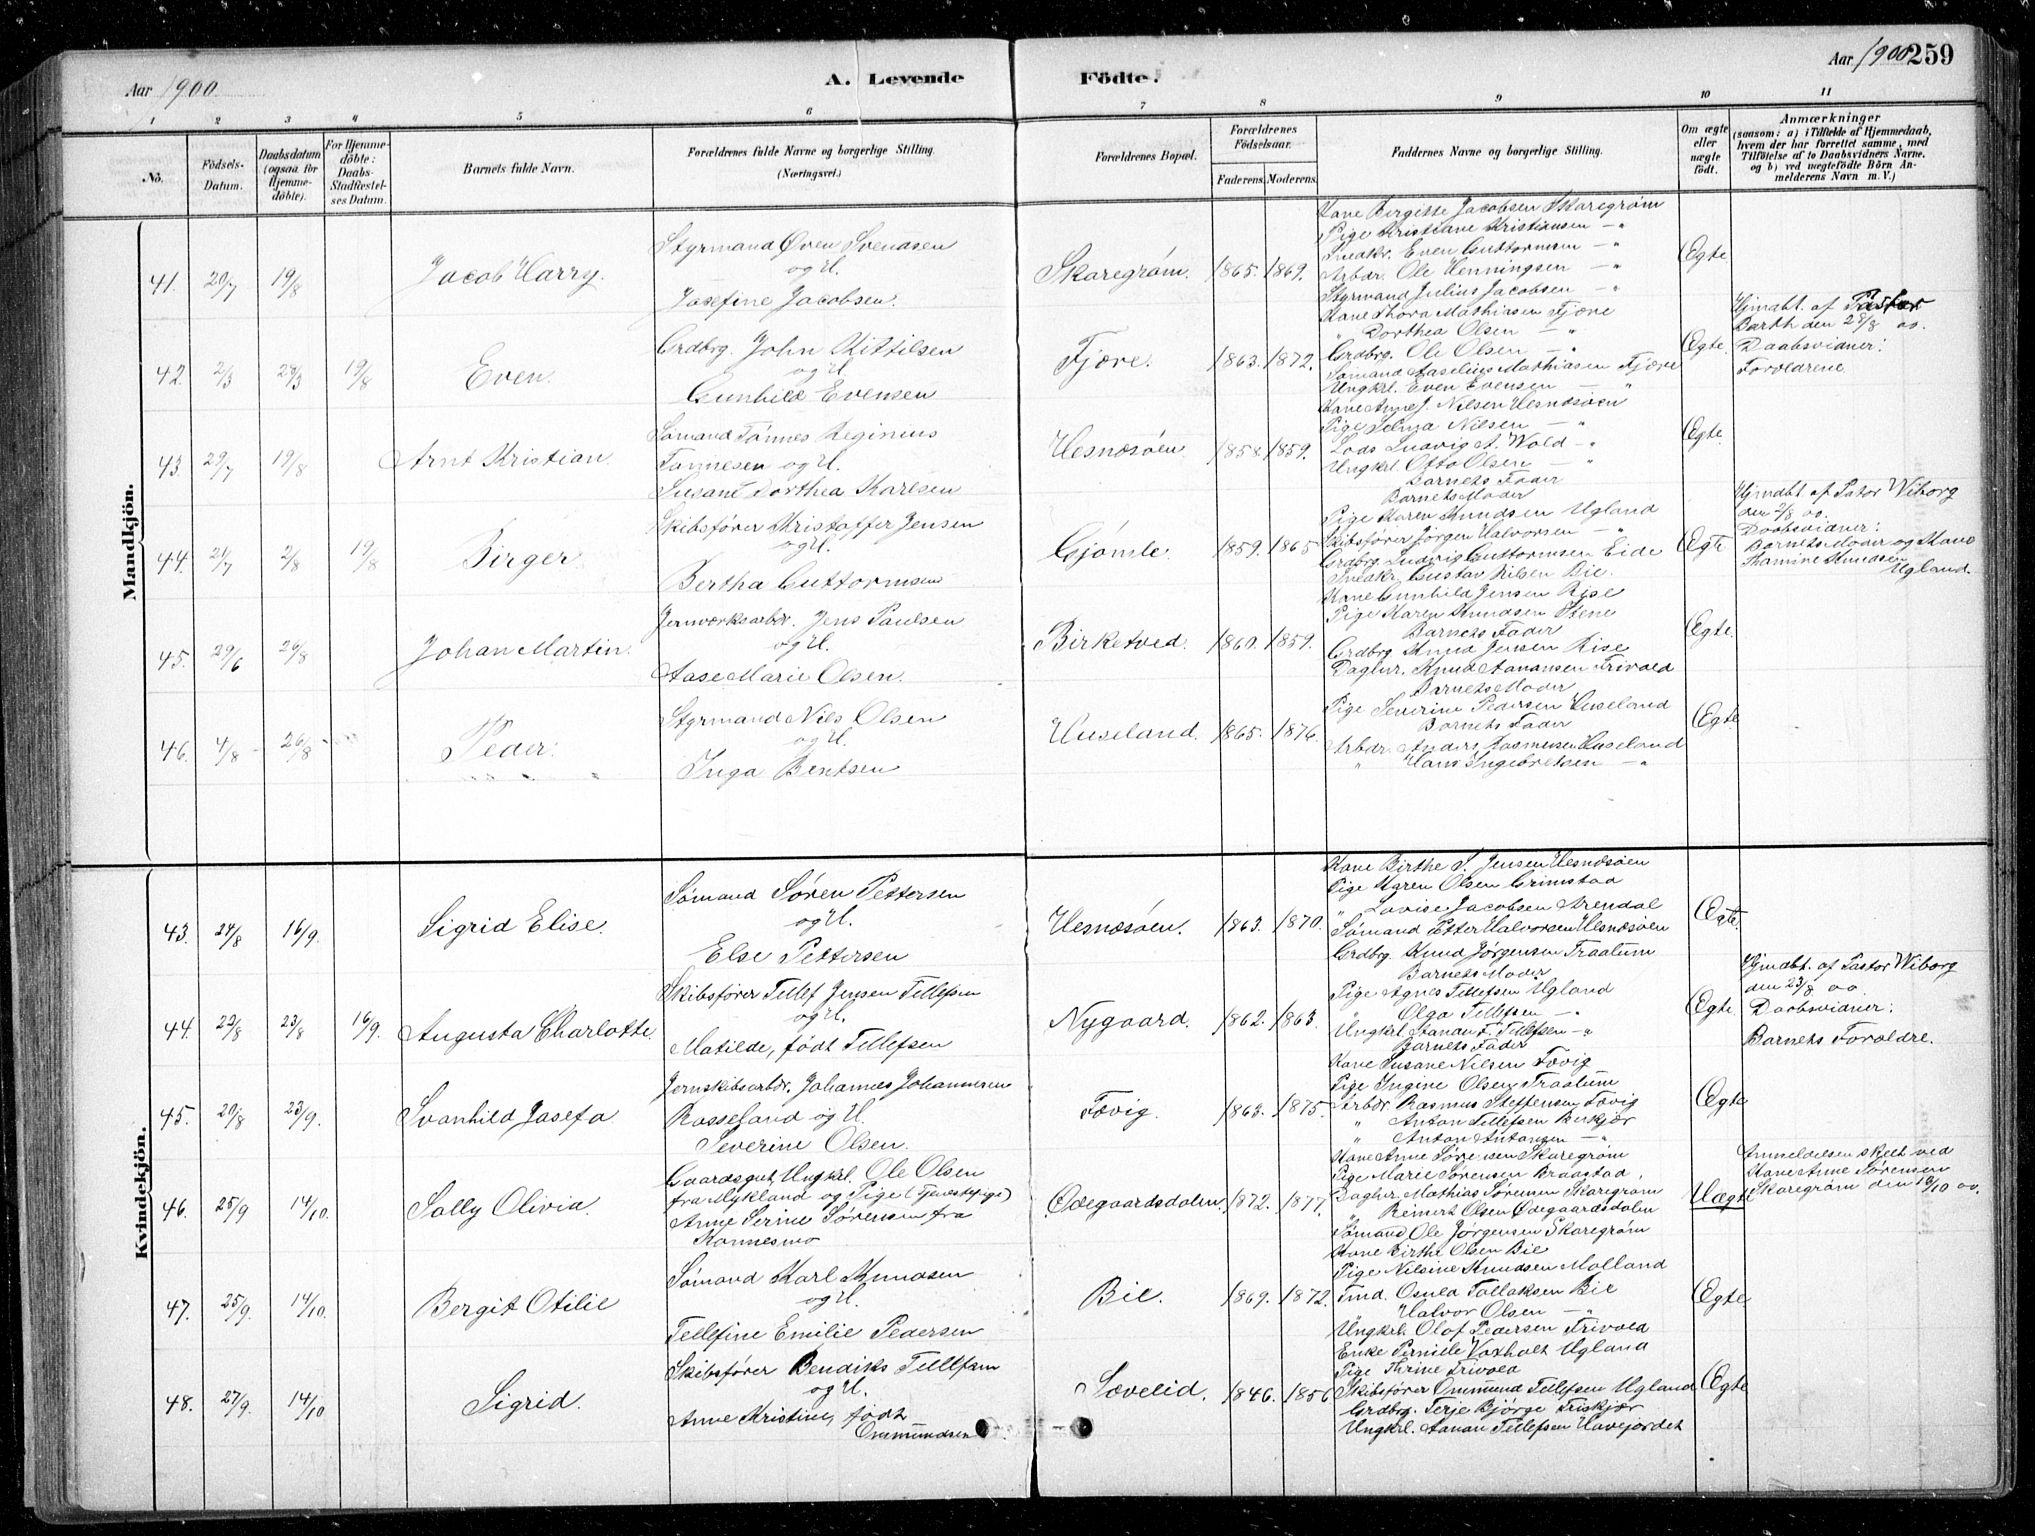 Aar 1900.
A. Levende Födte.
Aar 1900 259
1 2 3 4 5 6 7 8 9 10 11
No.
Födsels-
Datum.
Daabsdatum
(ogsaa for
Hjemme-
döbte).
For Hjemme-
döbte:
Daabs-
Stadfæstel-
ses Datum.
Barnets fulde Navn.
Forældrenes fulde Navne og borgerlige Stilling.
(Næringsvei.)
Forældrenes Bopæl.
Forældrenes
Födselsaar.
Faderens. Moderens.
Faddernes Navne og borgerlige Stilling.
Om ægte
eller
uægte
födt.
Anmærkninger
(saasom: a) i Tilfælde af Hjemmedaab,
hvem der har forrettet samme, med
Tilföielse af to Daabsvidners Navne.
og b) ved uægtefödte Börn An-
melderens Navn m. V.)
Mandkjön.
41. 20/7 19/8 Jacob Harry.
Styrmand Øven Svendsen
og H.
Josefine Jacobsen.
Skaregrøm. 1865. 1869.
Kone Birgitte Jacobsen Skaregrøm
Pige Kristiane Kristiansen — "
Snedkr. Even Guttormsen — "
Arbdr. Ole Henningsen — "
Styrmand Julius Jacobsen — "
Ægte
42. 2/3 28/3 19/8 Even.
Grdbrg. John Kittilsen
og H.
Gunhild Evensen
Fjære. 1863. 1872.
Kone Thora Mathiasen Fjære
" Dorthea Olsen — "
Grdbrg. Ole Olsen — "
Sømand Aaselius Mathiasen Fjære
Ungkrl. Even Evensen — "
Ægte.
Hjmdbt. af Pastor
Barth den 28/3 00.
Daabsvidner:
Forældrene.
43. 29/7 19/8 Arnt Kristian.
Sømand Tønnes Reginius
Tønnesen og H.
Susane Dorthea Karlsen
Hesnæsøen. 1858. 1859.
Kone Anne J. Nilsen Hesnæsøen
Pige Selma Nilsen — "
Lods Ludvig A. Wold — "
Ungkrl. Otto Olsen — "
Barnets Fader
Barnets Moder
Ægte.
44. 21/7 2/8 19/8 Birger.
Skibsfører Kristoffer Jensen
og H.
Bertha Guttormsen
Gjømle. 1859. 1865.
Pige Karen Knudsen Ugland
Skibsfører Jørgen Halvorsen — "
Grdbrg. Ludvig Guttormsen Eide
Snedkr. Gustav Nilsen Bie.
Ægte
Hjmdbt. af Pastor Wiborg
den 2/8 00.
Daabsvidner:
Barnets Moder og Kone
Thomine Knudsen
Ugland.
45. 29/6 26/8 Johan Martin.
Jernværksarbdr. Jens Paulsen
og H.
Aase Marie Olsen.
Birketved. 1860. 1859.
Kone Gunhild Jensen Rise
Pige Karen Knudsen Stene
Barnets Fader
Grdbrg. Knud Jensen Rise
Daglnr. Knud Aanansen Frivold
Barnets Moder
Ægte.
46. 4/8 26/8 Peder.
Styrmand Nils Olsen
og H.
Inga Bentsen
Huseland. 1865. 1876.
Pige Severine Pedersen Huseland
Barnets Fader
Arbdr. Anders Rasmussen Huseland
" Hans Ingebretsen — "
Ægte
Kvindekjön.
43. 24/8 16/9. Sigrid Elise.
Sømand Søren Pettersen
og H.
Else Pettersen
Hesnæsøen. 1863. 1870.
Kone Birthe S. Jensen Hesnæsøen
Pige Karen Olsen Grimstad
" Lovise Jacobsen Arendal
Sømand Petter Halvorsen Hesnæsøen
Grdbrg. Knud Jørgensen Traatum
Barnets Moder
Ægte.
44. 22/8 23/8 16/9. Augusta Charlotte.
Skibsfører Tellef Jensen Tellefsen
og H.
Matilde, født Tellefsen
Nygaard. 1862. 1863.
Pige Agnes Tellefsen Ugland
" Olga Tellefsen — "
Ungkrl. Aanan F. Tellefsen — "
Barnets Fader
Ægte.
Hjmdbt. af Pastor Wiborg
den 23/8 00.
Daabsvidner:
Barnets Forældre.
45. 20/8 23/9. Svanhild Josefa
Jernskibsarbdr. Johannes Johannesen
Rosseland og H.
Severine Olsen.
Fævig. 1863. 1875.
Kone Susane Nilsen Fævig
Pige Ingine Olsen Traatum
Arbdr Rasmus Steffensen Fævig
" Anton Tellefsen Birkjær
" Anton Antonsen — "
Ægte
46. 25/9 14/10. Sally Olivia.
Gaardsgut, Ungkrl. Ole Olsen
fra Mykland og Pige (Tjenestepige)
Anne Serine Sørensen fra
Kannesmo
Ødegaardsdalen. 1872. 1877.
Kone Anne Sørensen Skaregrøm
Pige Marie Sørensen Braastad,
Daglnr. Mathias Sørensen Skaregrøm
" Reinert Olsen Ødegaardsdalen
Sømand Ole Jørgensen Skaregrøm
Uægte
Anmeldelsen skeet ved
Kone Anne Sørensen
Skaregrøm den 13/10 00.
47. 25/9. 14/10. Bergit Otilie
Sømand Karl Knudsen
og H.
Tellefine Emilie Pedersen
Bie. 1869. 1872.
Kone Birthe Olsen Bie
Pige Nilsine Knudsen Molland
Tmd. Osuld Tallaksen Bie
" Halvor Olsen — "
Ungkrl. Olaf Pedersen Frivold
Ægte
48. 27/9. 14/10 Sigrid.
Skibsfører Bendiks Tellefsen
og H.
Anne Kristine, født
Ommundsen
Sævelid. 1846. 1856
Enke Pernille Voxholt Ugland
Pige Thrine Frivold
Skibsfører Ommund Tellefsen Ugland
Grdbrg. Terje Bjørge Friskjær
Ungkrl. Aanan Tellefsen Havejordet
Ægte